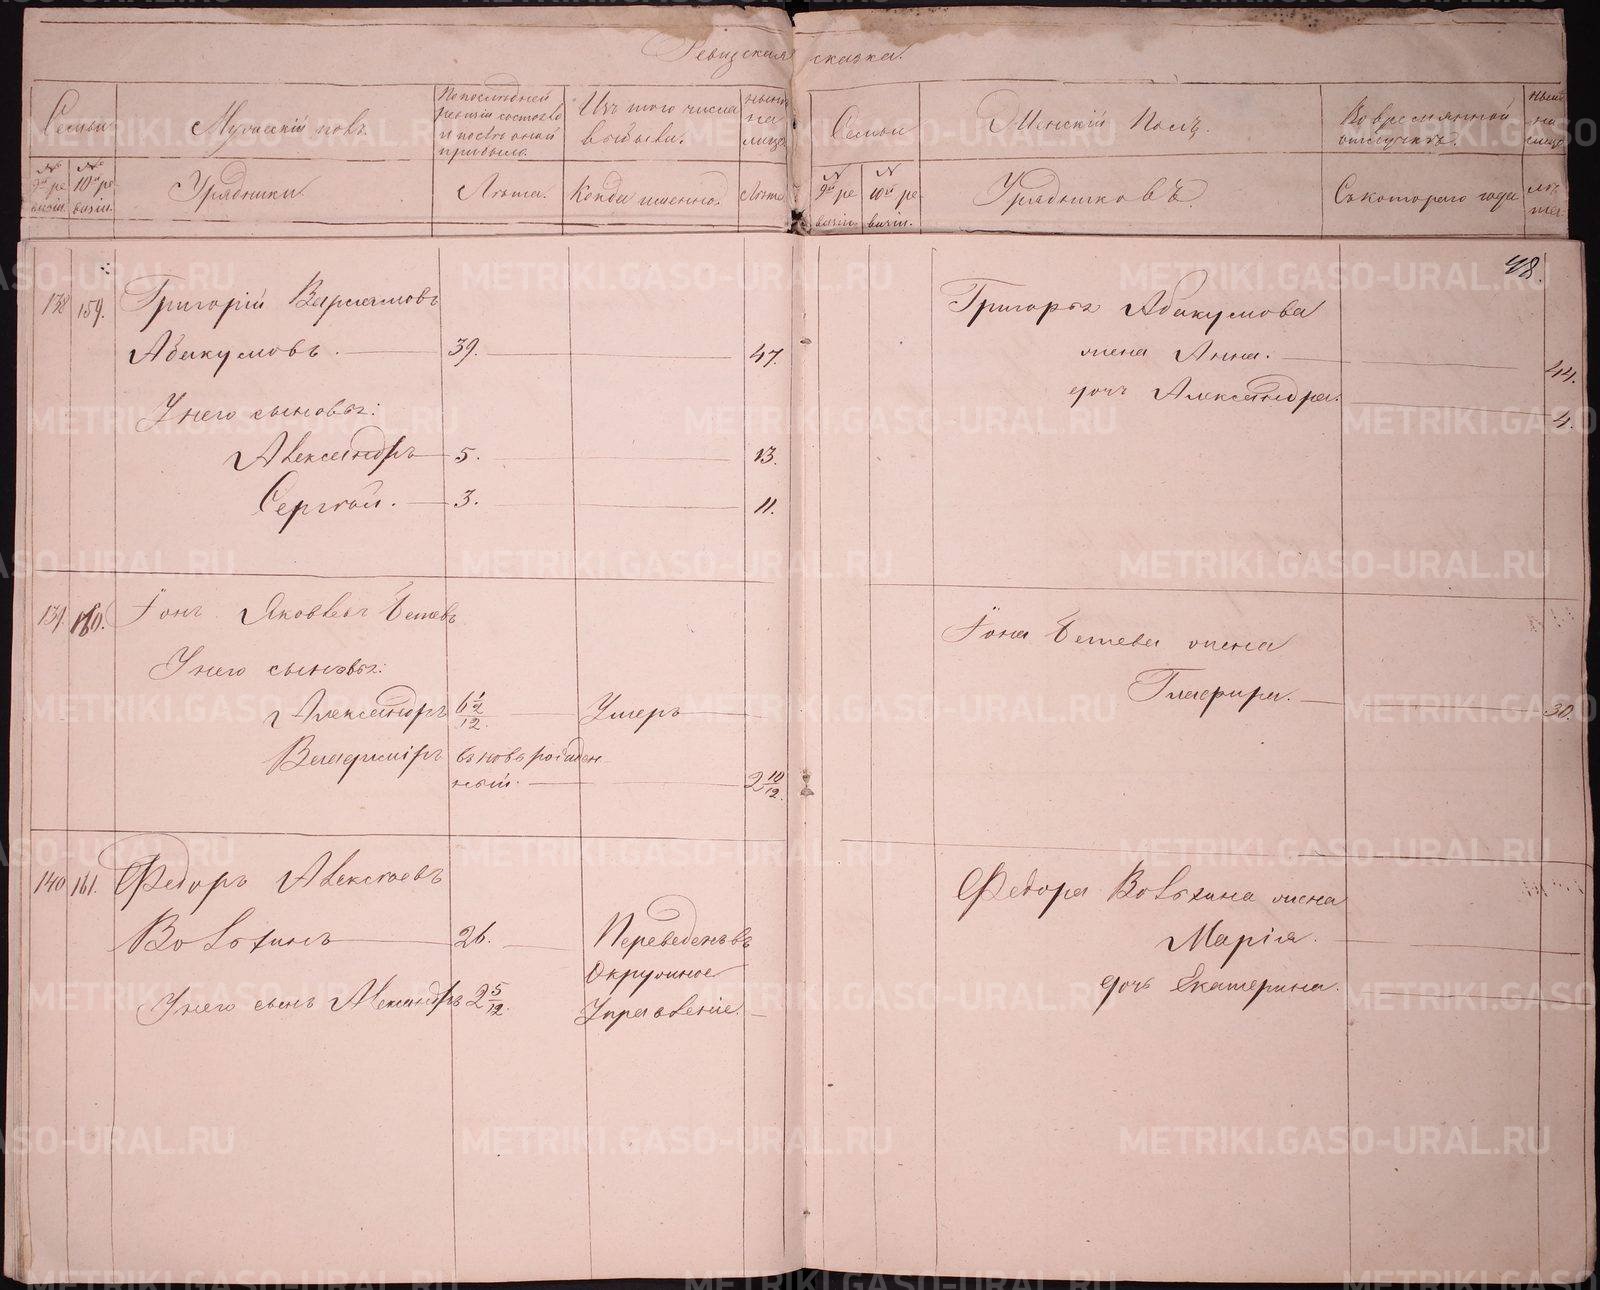 Ревизская сказка.
Семьи
Мужескій полъ.
По последней
ревизіи состояло
и после оной
прибыло.
Изъ того числа
выбыли.
ныне
на
лицо
№ 9ой ревизіи.
№ 10ой ревизіи.
Урядники.
Лѣта.
Когда именно.
Лѣта
Семьи
Женскій Полъ.
Во временной
отлучкѣ.
ныне
на
лицо
№ 9ой ревизіи.
№ 10ой ревизіи.
Урядниковъ
Съ котораго года
лѣта
138 159. Григорій Варламовъ
Абакумовъ. 39. 47.
У него сыновья:
Александръ 5. 13.
Сергѣй. 3. 11.
139. 160. Іонъ Яковлевъ
У него сыновья:
Александръ Умеръ
Владиміръ вновь рожден-
ный. 2 10/12.
140 161. Федоръ Алексѣевъ
Волохинъ 26. Переведенъ въ
Окружное
У него сынъ Александръ 2 5/12. Управленіе.
48.
Григорья Абакумова
жена Анна. 44.
дочь Александра. 4.
Іона жена
Глафира. 30.
Федора Волохина жена
Марія.
дочь Екатерина.
METRIKI.GASO-URAL.RU